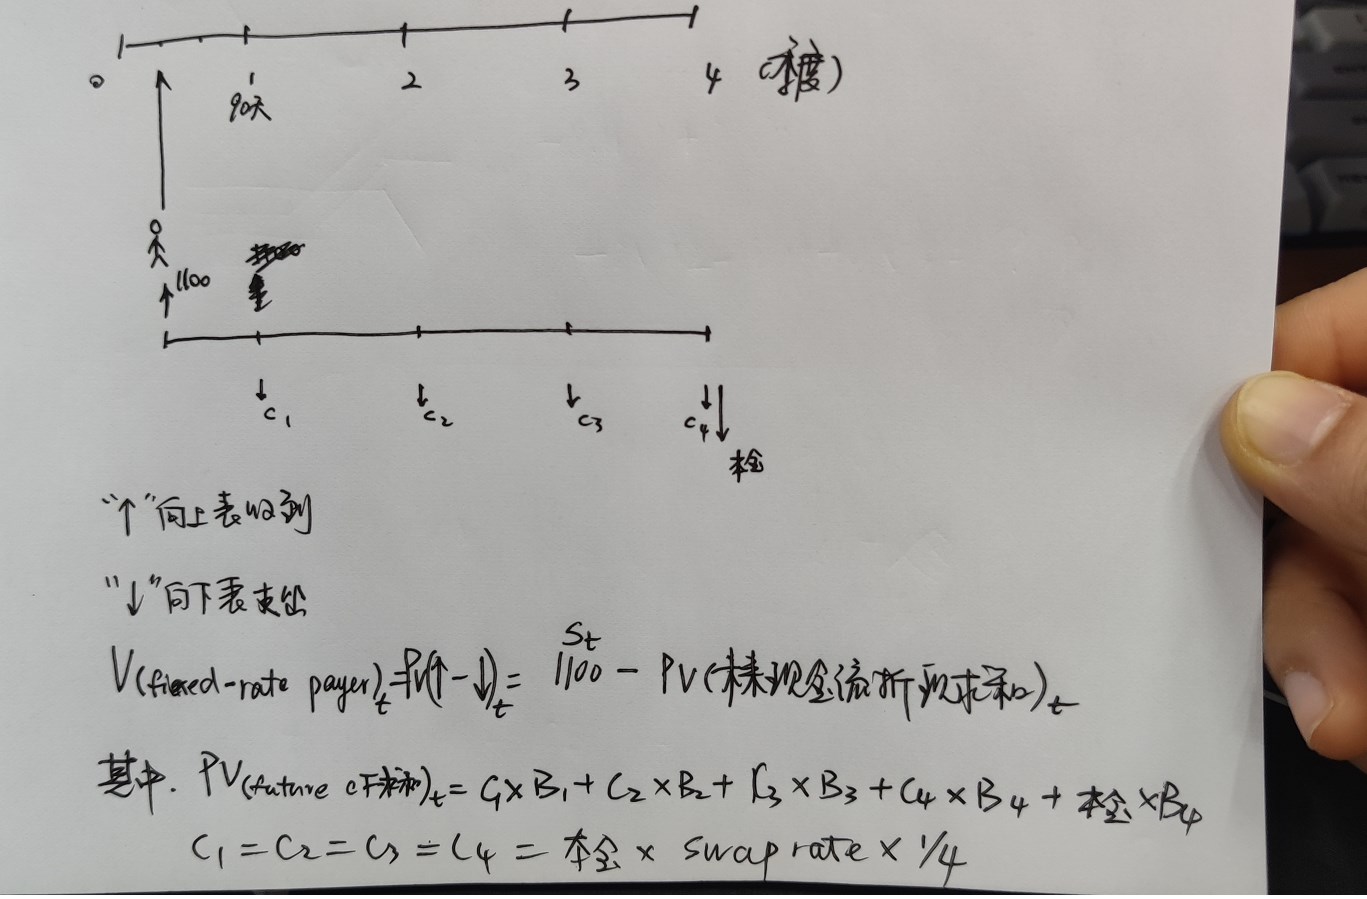 0 1 2 3 4 (季度)
90天
↑1100
↓C1 ↓C2 ↓C3 C4↓↓
本金
“↑”向上表收到
“↓”向下表支出
St
V(fixed-rate payer)t=PV(↑-↓)t= 1100 - PV(未来现金流折现求和)t
其中. PV(future CF求和)t= C1×B1+C2×B2+C3×B3+C4×B4+本金×B4
C1=C2=C3=C4= 本金× swap rate×1/4